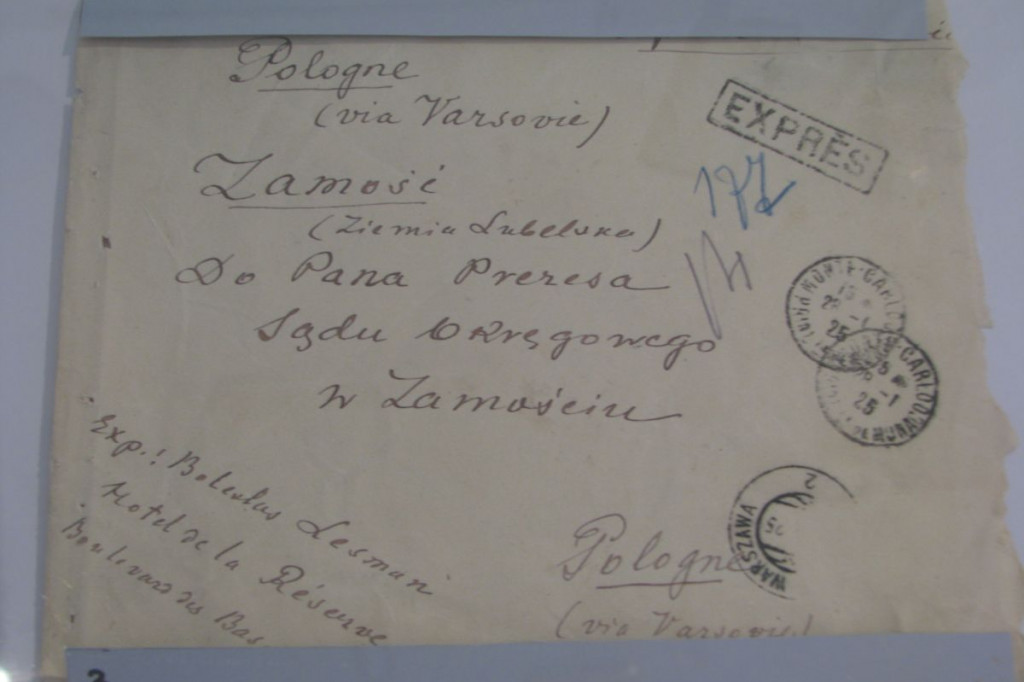 Pologne
(via Varsovie)
EXPRÈS
Zamość
(Ziemia Lubelska)
Do Pana Prezesa
Sądu Okręgowego
w Zamościu
177
MONTE-CARLO
25
CARLO
25
WARSZAWA
2
25
Exp.: Boleslas Lesman
Hotel de la Réserve
Boulevard des Bas
Pologne
(via Varsovie)
2